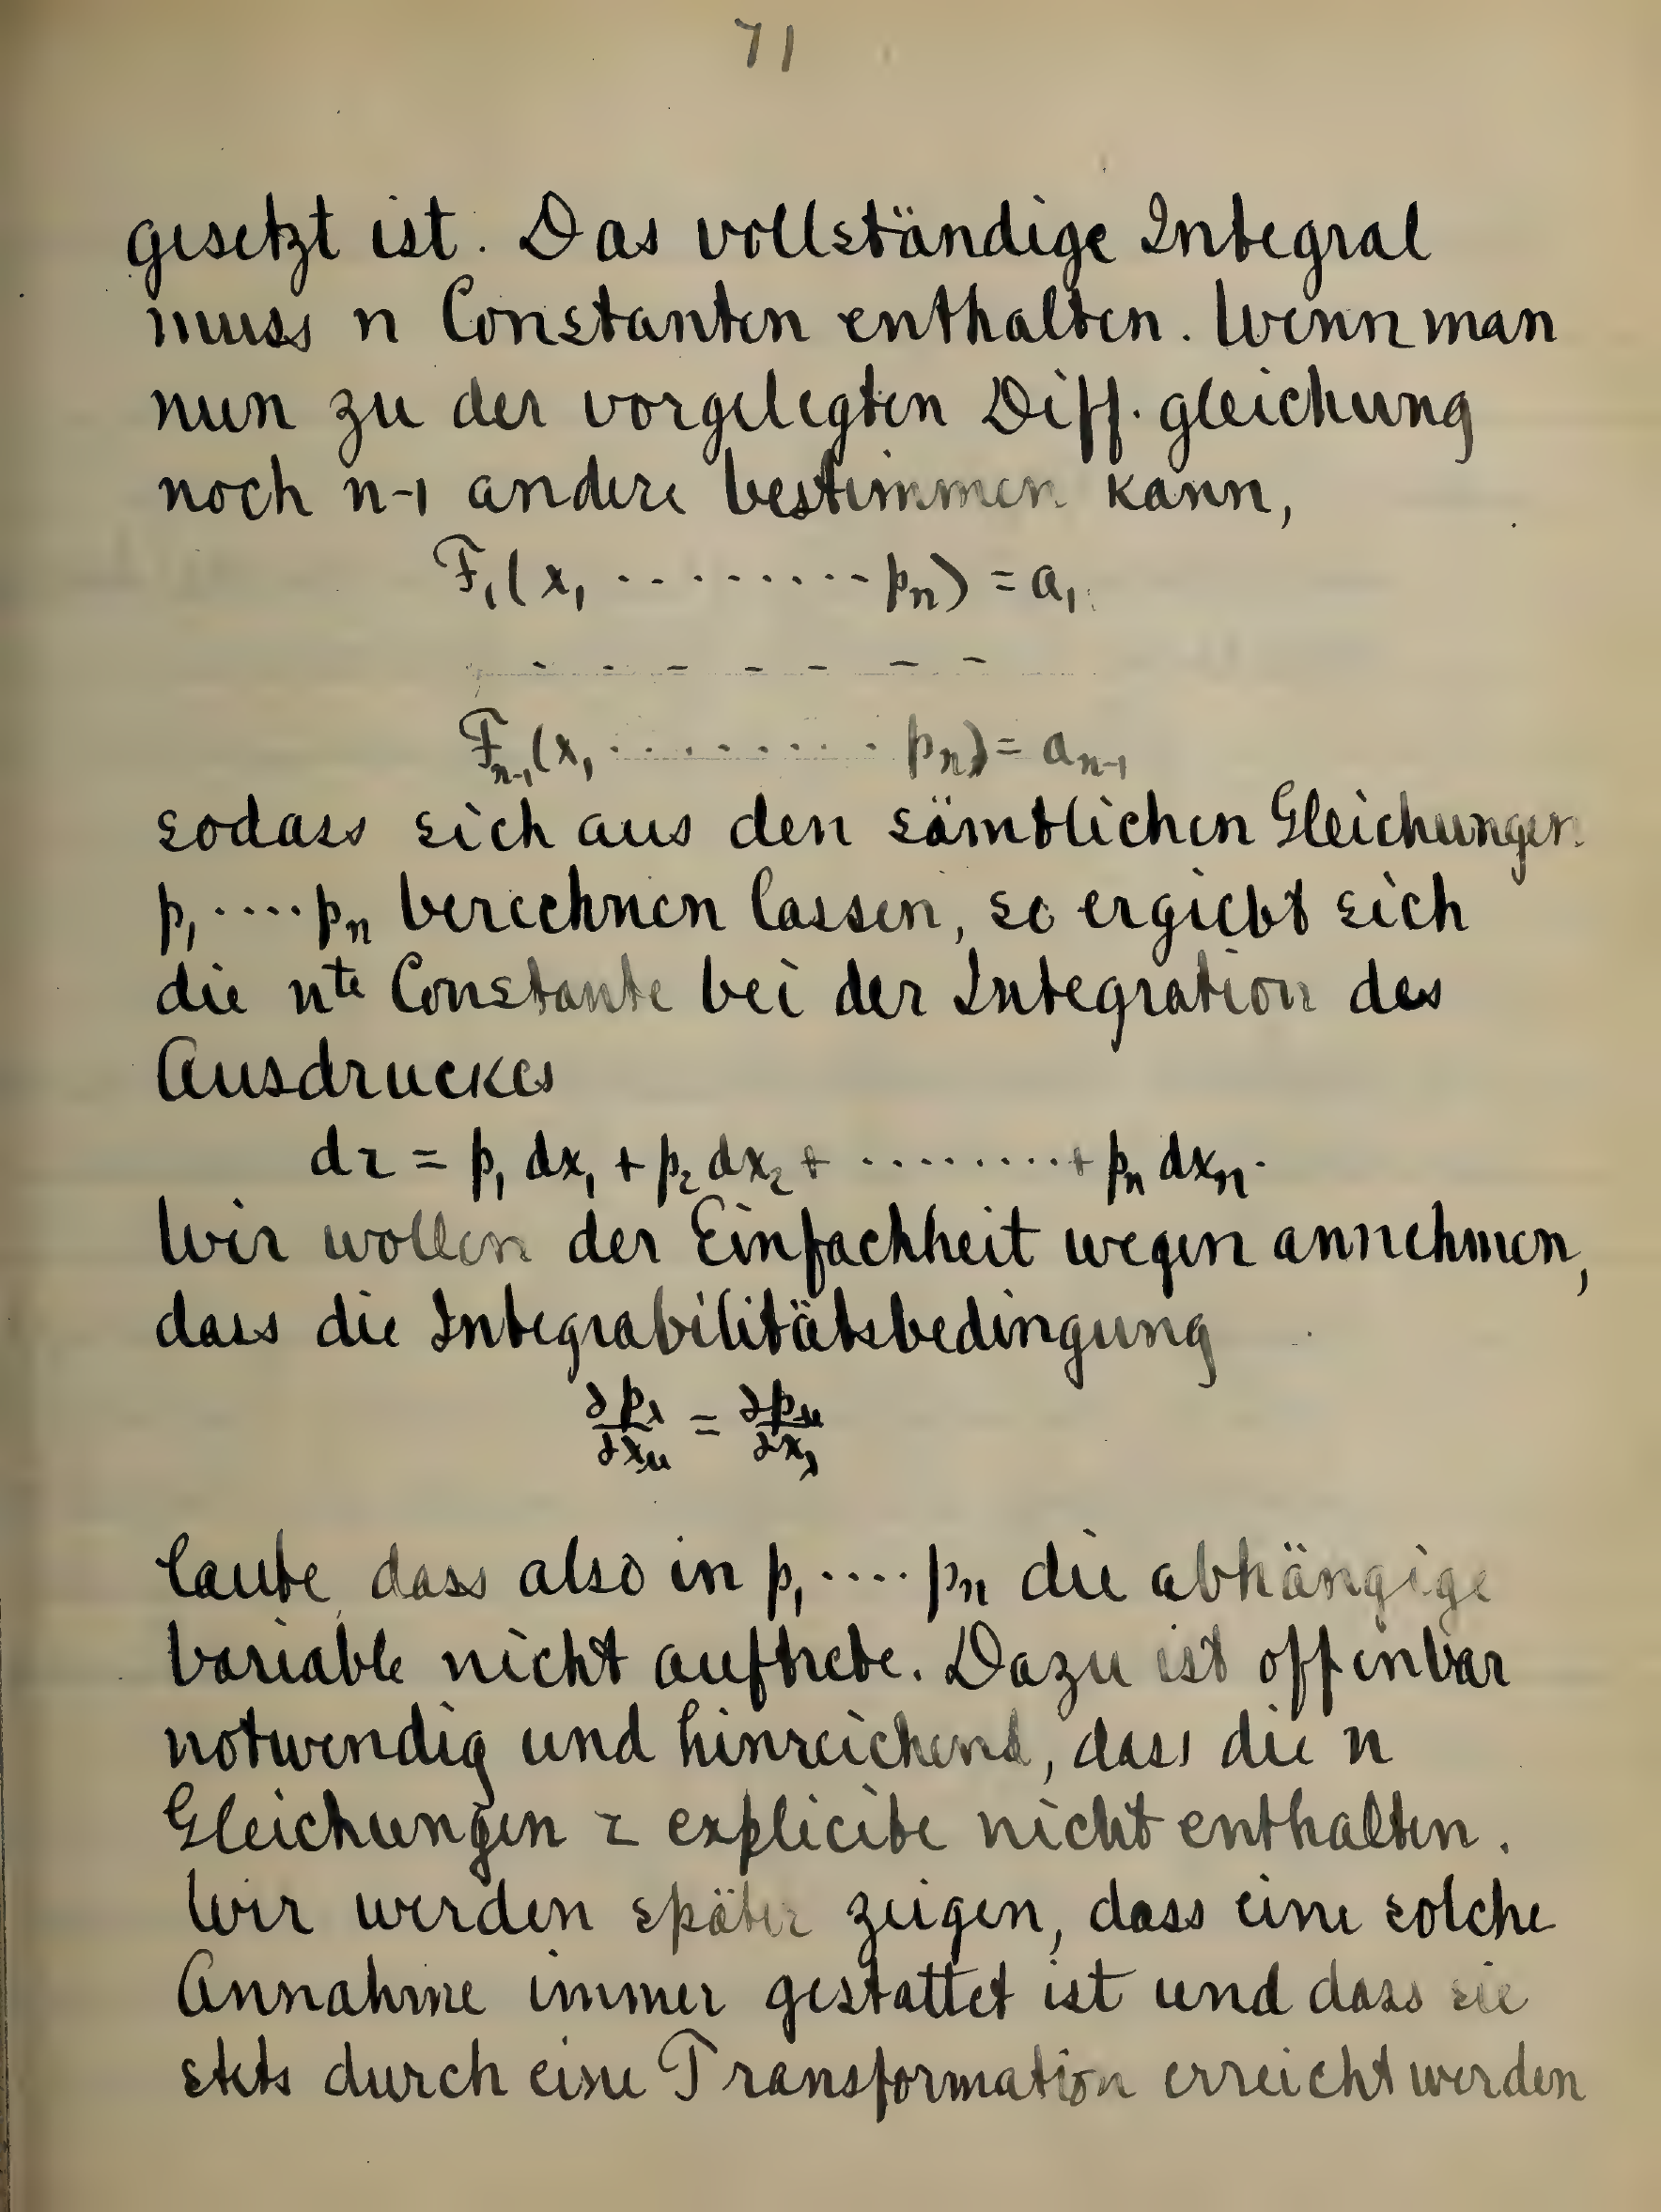 71
gesetzt ist. Das vollständige Integral
muss n Constanten enthalten. Wenn man
nun zu der vorgelegten Diff. gleichung
noch n-1 andere bestimmen kann,
F₁(x₁ ········· pₙ) = a₁
- - - - - - -
Fₙ₋₁(x₁ ········· pₙ) = aₙ₋₁
sodass sich aus den sämtlichen Gleichungen
p₁ ···· pₙ berechnen lassen, so ergiebt sich
die nte Constante bei der Integration des
Ausdruckes
dz = p₁ dx₁ + p₂ dx₂ + ········· + pₙ dxₙ.
Wir wollen der Einfachheit wegen annehmen,
dass die Integrabilitätsbedingung
∂p_λ/∂x_μ = ∂p_μ/∂x_λ
laute, dass also in p₁ ···· pₙ die abhängige
Variable nicht auftrete. Dazu ist offenbar
notwendig und hinreichend, dass die n
Gleichungen z explicite nicht enthalten.
Wir werden später zeigen, dass eine solche
Annahme immer gestattet ist und dass sie
stets durch eine Transformation erreicht werden